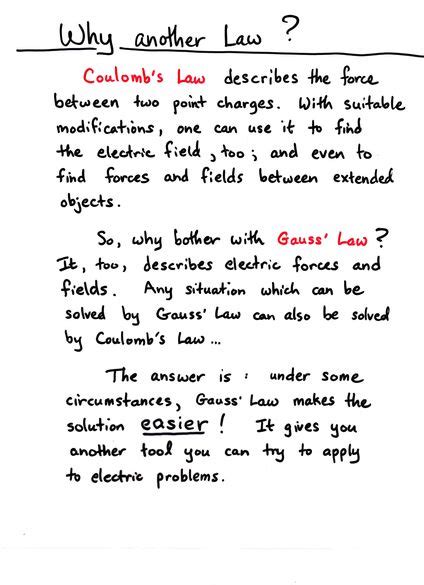 Why another Law ?
Coulomb's Law describes the force
between two point charges. With suitable
modifications, one can use it to find
the electric field, too; and even to
find forces and fields between extended
objects.
So, why bother with Gauss' Law ?
It, too, describes electric forces and
fields. Any situation which can be
solved by Gauss' Law can also be solved
by Coulomb's Law ...
The answer is : under some
circumstances, Gauss' Law makes the
solution easier ! It gives you
another tool you can try to apply
to electric problems.